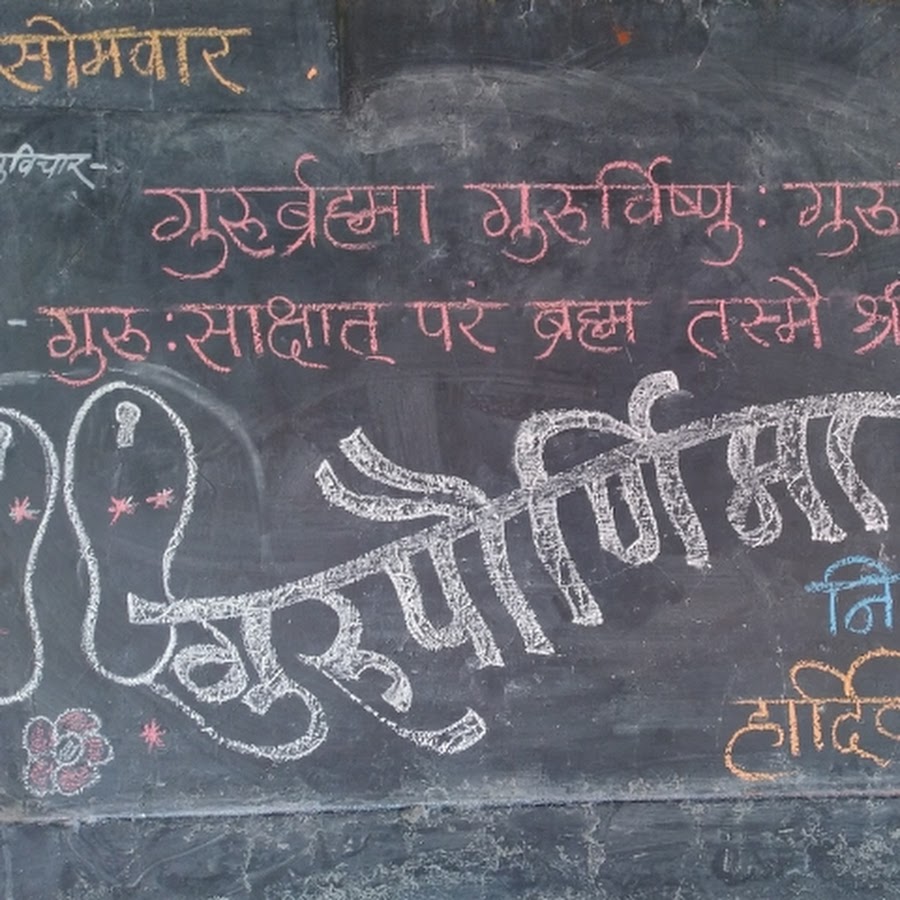 सोमवार
गुरुर्ब्रह्मा गुरुर्विष्णु: गुरु
- गुरु:साक्षात् परं ब्रह्म तस्मै श्री
गुरुपौर्णिमा
नि